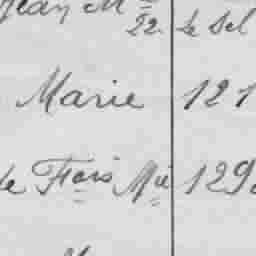 Jean M
22. Le Sel
Marie 121
de Frois Mie 129